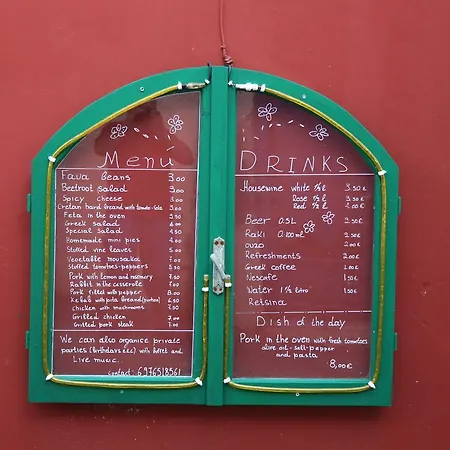 Menú
Fava beans 3.00
Beetroot salad 3.00
Spicy cheese 3.00
Cretan hard breand with tomato-
Feta in the oven
Greek salad
Special salad
Homemade mini pies
Stuffed vine leaves
Vegetable mousakas
Stuffed tomatoes-peppers
Pork with lemon and rosemary
Rabbit in the casserole
Pork filled with pepper
Kebab with pita bread (portion)
Chicken with mushrooms
Grilled chicken
Grilled pork steak 7.00
We can also organise private
parties (birthdays etc) with buffet and
Live music.
contact: 6976518561
DRINKS
Housewine white ½ l 3.50 €
Rose ½ l 3.50 €
Red ½ l 4.00 €
Beer 0.5L 2.50 €
Raki 0.100 ml 2.50 €
ouzo 2.00 €
Refreshments 2.00 €
Greek coffee 1.50 €
Nescafe 1.50 €
Water 1 ½ litro 1.50 €
Retsina
Dish of the day
Pork in the oven with fresh tomatoes
olive oil - salt - pepper
and pasta
8,00 €